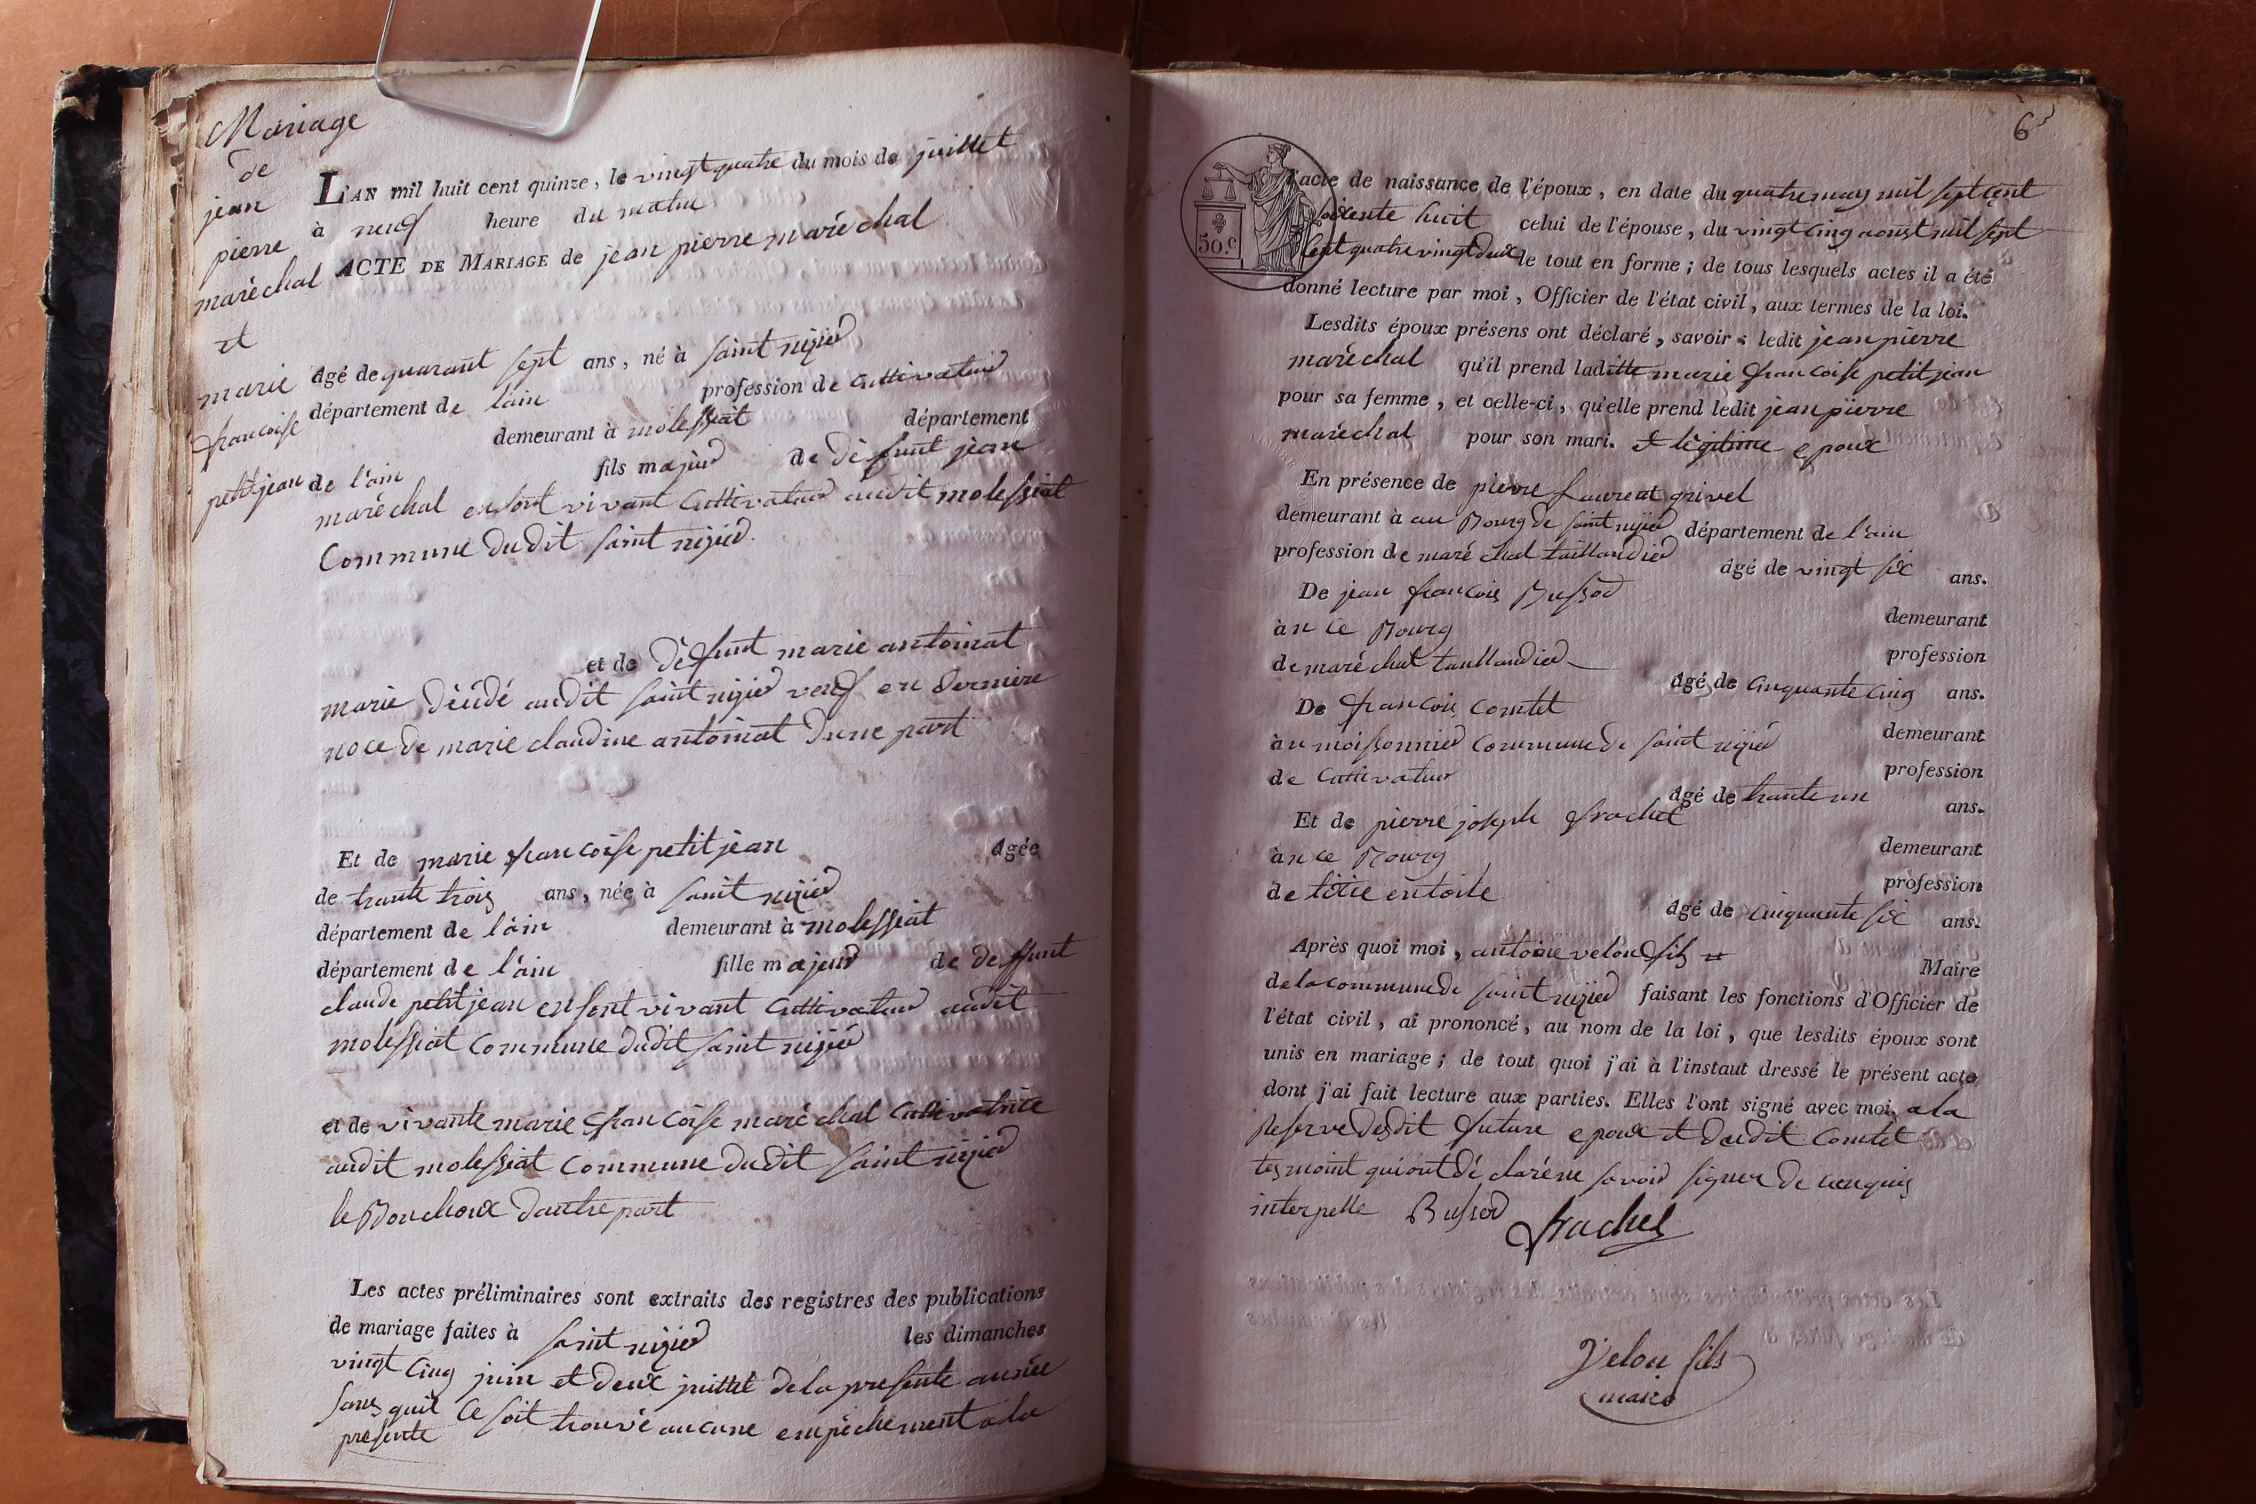 Mariage
de
jean
pierre
maréchal
et
marie
francoise
petitjean
L'AN mil huit cent quinze, le vingt quatre du mois de juillet
à neuf heure du matin
ACTE DE MARIAGE de jean pierre maréchal
âgé de quarant sept ans, né à saint nizier
département de l'ain profession de cultivateur
demeurant à molessiat département
de l'ain fils majeur de deffunt jean
maréchal ensont vivant cultivateur audit molessiat
Commune dudit saint nizier
et de deffunt marie antoinat
marie décédé audit saint nizier veuf en dernière
noce de marie claudine antoinat d'une part
Et de marie francoise petit jean âgée
de trante trois ans, née à saint nizier
département de l'ain demeurant à molessiat
département de l'ain fille majeur de deffunt
claude petit jean ensont vivant cultivateur audit
molessiat commune dudit saint nizier
et de vivante marie francoise maréchal cultivatrice
audit molessiat commune dudit saint nizier
le Bouchoux dautre part
Les actes préliminaires sont extraits des registres des publications
de mariage faites à saint nizier les dimanches
vingt cinq juin et deux juillet de la presente année
sans quil ce soit trouvé aucune empêchement a la
presente
6
50.c
l'acte de naissance de l'époux, en date du quatre may mil sept cent
soixente huit celui de l'épouse, du vingt cinq aoust mil sept
cent quatre vingt deux le tout en forme; de tous lesquels actes il a été
donné lecture par moi, Officier de l'état civil, aux termes de la loi.
Lesdits époux présens ont déclaré, savoir: ledit jean pierre
maréchal qu'il prend laditte marie francoise petit jean
pour sa femme, et celle-ci, qu'elle prend ledit jean pierre
maréchal pour son mari. et legitime epoux
En présence de pierre Laurent grivel
demeurant à au Bourg de saint nizier département de l'ain
profession de maréchal taillandier âgé de vingt six ans.
De jean francois Bussod demeurant
à n ce Bourg profession
de maréchal taillandier âgé de cinquante cinq ans.
De francois comtet demeurant
à n moissonnier commune de saint nizier profession
de Cultivateur âgé de trante un ans.
Et de pierre joseph frachet demeurant
à n ce Bourg profession
de titie en toile âgé de cinquente six ans.
Après quoi moi, antoine velon fils Maire
de la commune de saint nizier faisant les fonctions d'Officier de
l'état civil, ai prononcé, au nom de la loi, que lesdits époux sont
unis en mariage; de tout quoi j'ai à l'instaut dressé le présent acte
dont j'ai fait lecture aux parties. Elles l'ont signé avec moi, a la
Reserve desdit future epoux et dudit Comtet
tesmoint qui ont déclaré ne savoir signer de ce enquis
interpelle Bussod frachet
Velon fils
maire